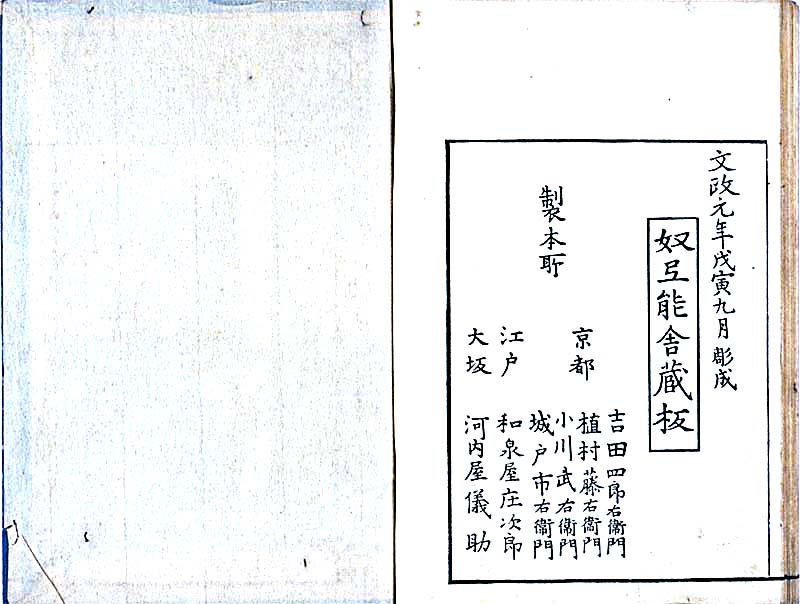 文政元年戊寅九月彫成
奴弖能舎蔵板
製本所
京都
吉田四郎右衛門
植村藤右衛門
小川武右衛門
城戸市右衛門
江戸
和泉屋庄次郎
大坂
河内屋儀助